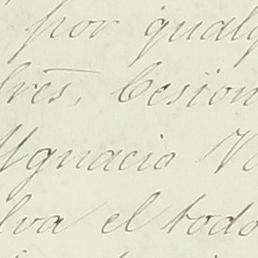 por qualq
res, Cesion
Ygnacio Va
lva el todo